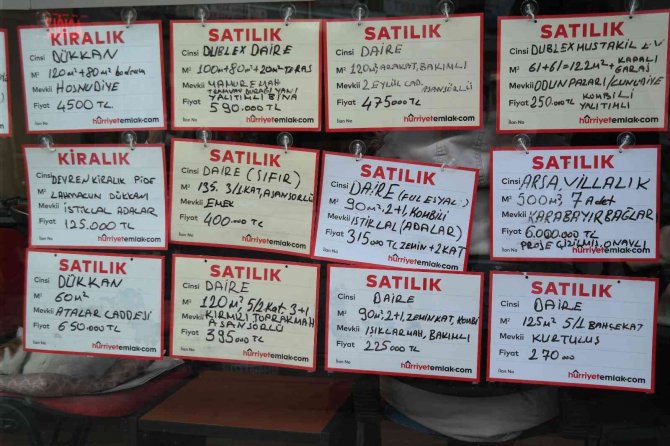 KİRALIK
Cinsi DÜKKAN
M² 120m²+80m² bodrum
Mevkii HOŞNUDİYE
Fiyat 4500 TL
İlan No
hürriyetemlak.com
SATILIK
Cinsi DUBLEX DAİRE
M² 100m²+80m²+20m² TERAS
Mevkii MAMUREMAH
TRAMVAY DURAĞI YANI
YALITIMLI BİNA
Fiyat 590.000 TL
İlan No
hürriyetemlak.com
SATILIK
Cinsi DAİRE
M² 120m² ARAKAT, BAKIMLI
Mevkii 2 EYLÜL CAD. ASANSÖRLÜ
Fiyat 475000 TL
İlan No
hürriyetemlak.com
SATILIK
Cinsi DUBLEX MUSTAKİL EV
M² 61+61=122m²+ KAPALI GARAJ
Mevkii ODUNPAZARI/CUNUDİYE
Fiyat 250.000 TL KOMBİLİ
YALITIMLI
İlan No
hürriyetemlak.com
KİRALIK
Cinsi DEVREN KİRALIK PİDE
M² LAHMACUN DÜKKANI
Mevkii İSTİKLAL ADALAR
Fiyat 125.000 TL
İlan No
hürriyetemlak.com
SATILIK
Cinsi DAİRE (SIFIR)
M² 135. 3/1 KAT, ASANSÖRLÜ
Mevkii EMEK
Fiyat 400000 TL
İlan No
hürriyetemlak.com
SATILIK
Cinsi DAİRE (FULEŞYALI)
M² 90m², 2+1, KOMBİLİ
Mevkii İSTİKLAL (ADALAR)
Fiyat 315000 TL ZEMİN+2KAT
İlan No
hürriyetemlak.com
SATILIK
Cinsi ARSA, VİLLALIK
M² 500m², 7 Adet
Mevkii KARABAYIRBAĞLAR
Fiyat 6.000000 TL
PROJE ÇİZİLMİŞ, ONAYLI
İlan No
hürriyetemlak.com
SATILIK
Cinsi DÜKKAN
M² 60m²
Mevkii ATALAR CADDESİ
Fiyat 650.000 TL
İlan No
hürriyetemlak.com
SATILIK
Cinsi DAİRE
M² 120m² 5/2 Kat. 3+1
Mevkii KIRMIZI TOPRAKMAH
ASANSÖRLÜ
Fiyat 395000 TL
İlan No
hürriyetemlak.com
SATILIK
Cinsi DAİRE
M² 90m², 2+1, ZEMİNKAT, KOMBİ
Mevkii IŞIKLARMAH, BAKIMLI
Fiyat 225000 TL
İlan No
hürriyetemlak.com
SATILIK
Cinsi DAİRE
M² 125m² 5/1 BAHÇEKAT
Mevkii KURTULUŞ
Fiyat 270.000
İlan No
hürriyetemlak.com